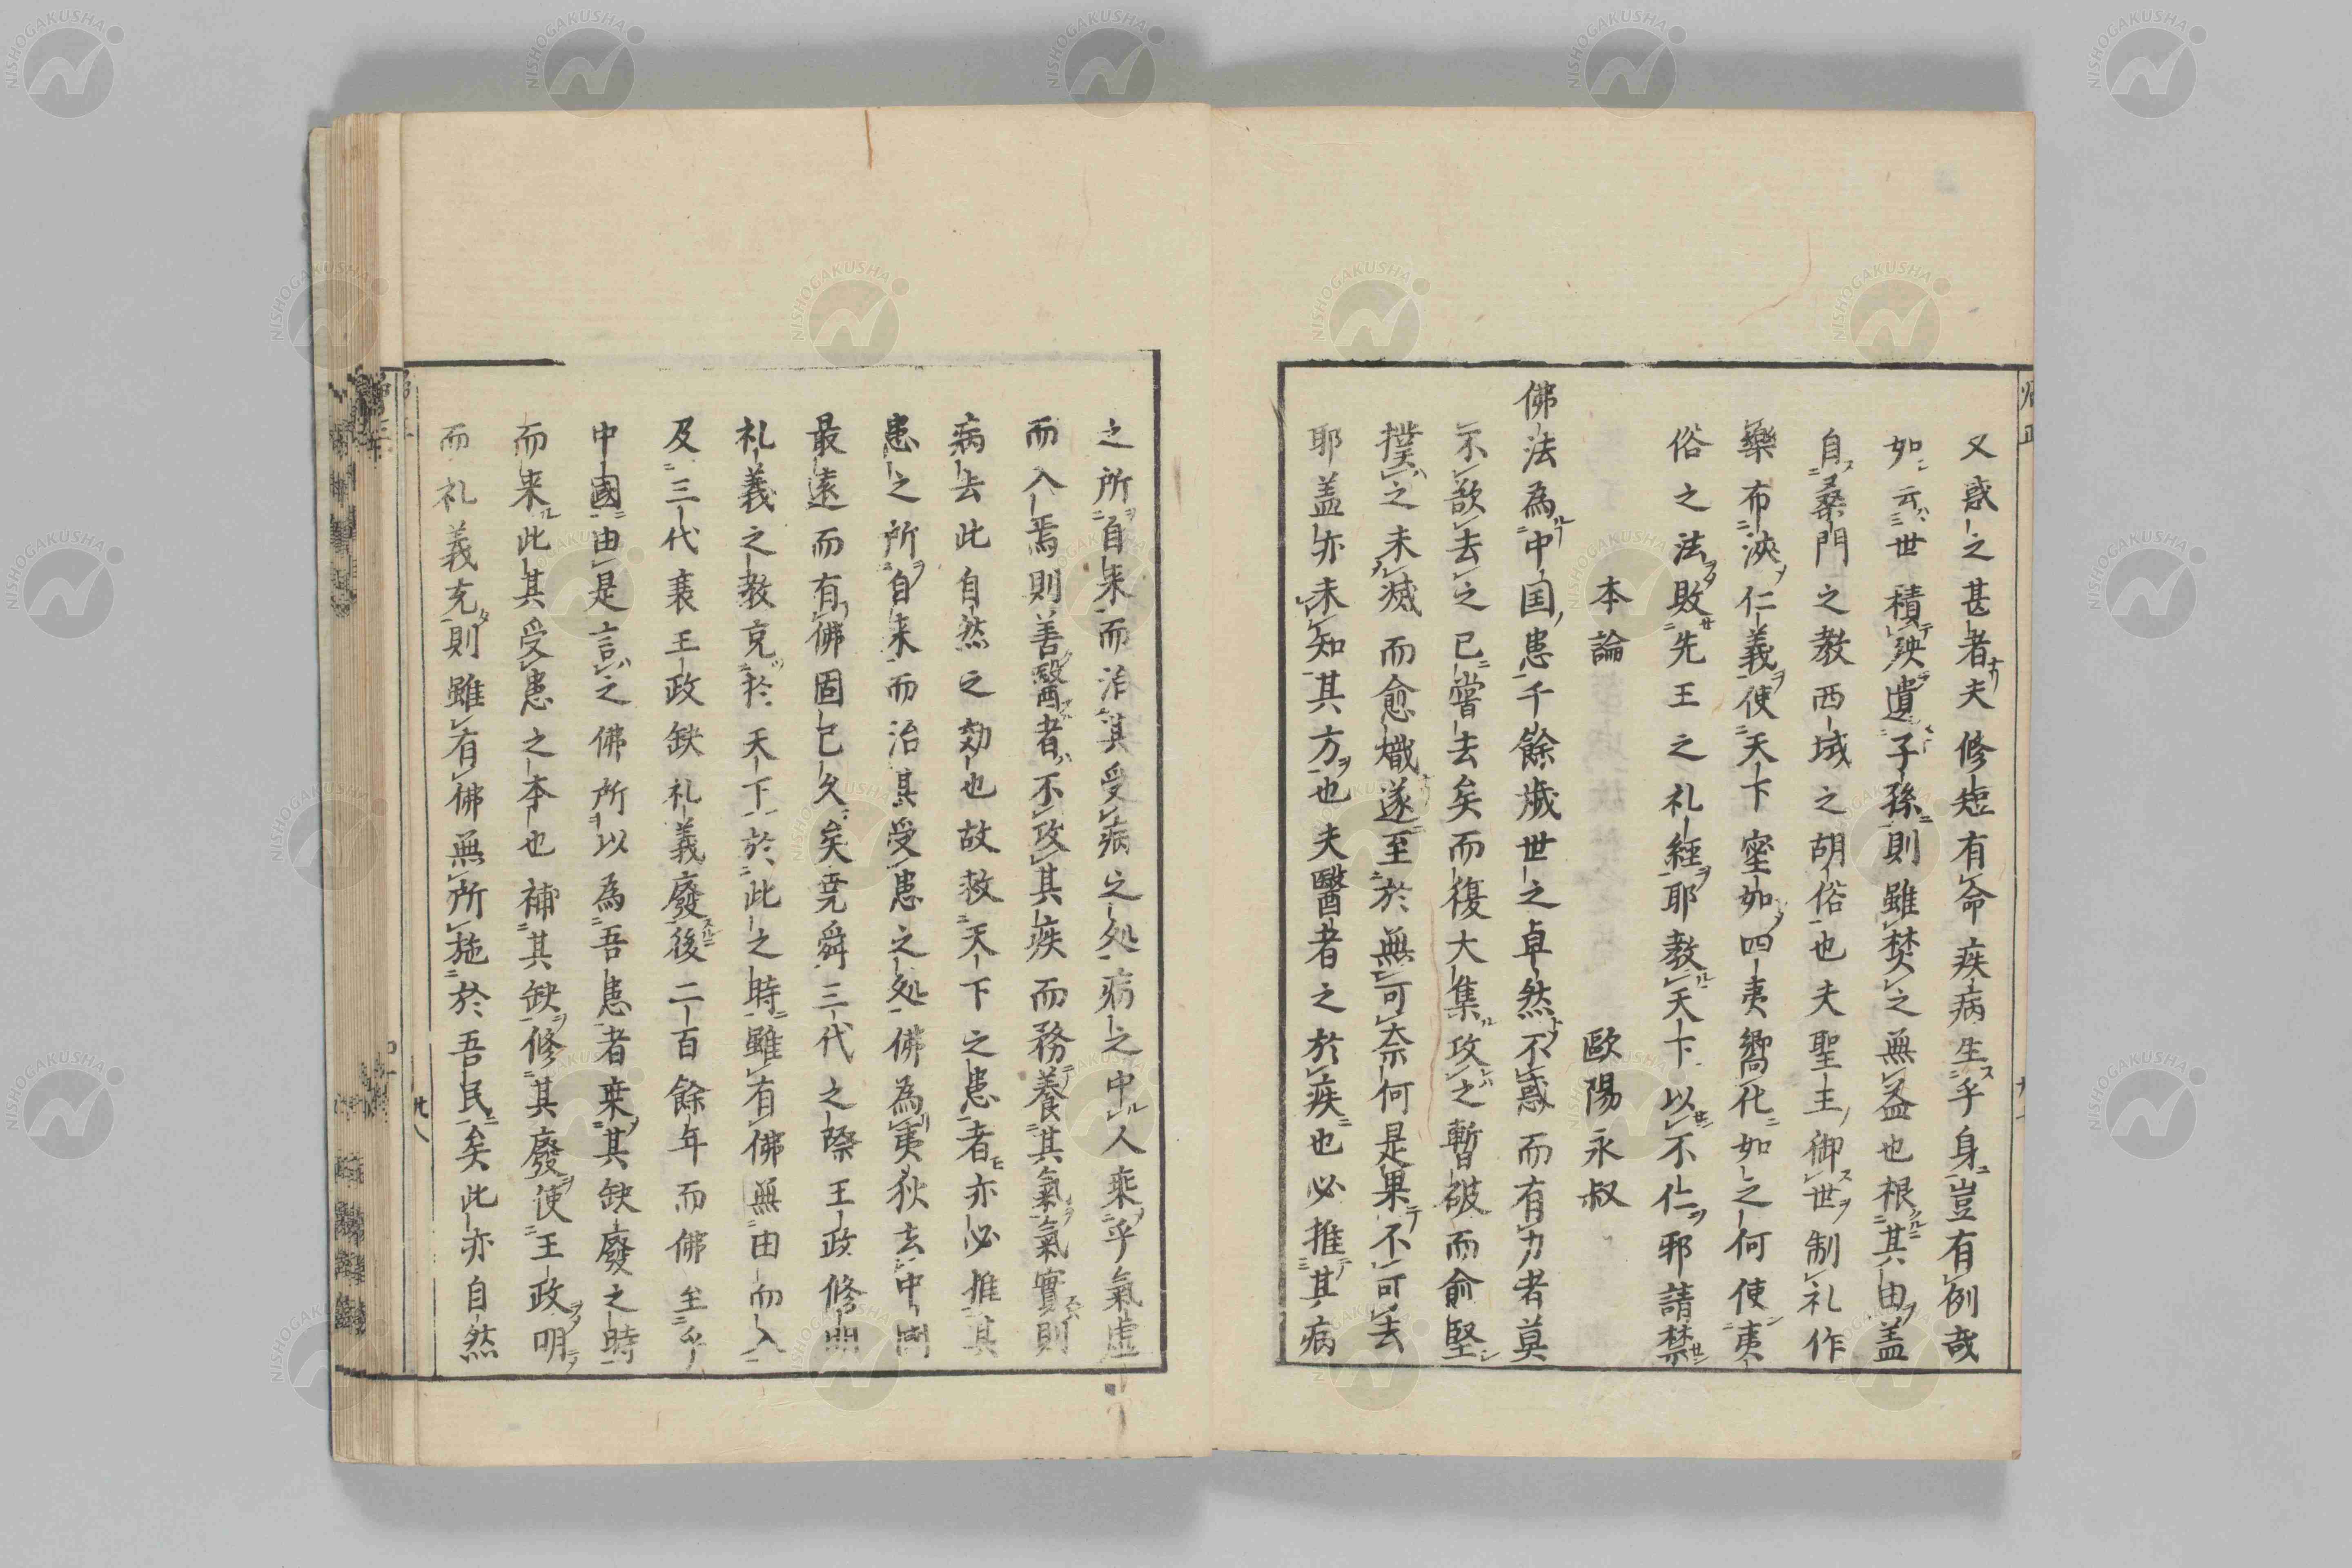 又惑之甚者夫修短有命疾病生乎身豈有例哉
如云世積殃遺子孫則雖焚之無益也根其由盖
自桑門之教西域之胡俗也夫聖主御世制礼作
樂布浹仁義使天下密如四夷嚮化如之何使夷
俗之法敗先王之礼經耶教天下以不仁邪請禁
本論 歐陽永叔
佛法為中国患千餘歲世之卓然不惑而有力者莫
不欲去之已嘗去矣而復大集攻之暫破而愈堅
撲之未滅而愈熾遂至於無可奈何是果不可去
耶盖亦未知其方也夫醫者之於疾也必推其病
之所自来而治其受病之処病之中人乘乎氣虚
而入焉則善醫者不攻其疾而務養其氣氣實則
病去此自然之効也故救天下之患者亦必推其
患之所自来而治其受患之処佛為夷狄去中國
最遠而有佛固已久矣尭舜三代之際王政修明
礼義之教充於天下於此之時雖有佛無由而入
及三代衰王政缺礼義廢後二百餘年而佛至乎
中國由是言之佛所以為吾患者乗其缺廢之時
而来此其受患之本也補其缺修其廢使王政明
而礼義充則雖有佛無所施於吾民矣此亦自然
NISHOGAKUSHA